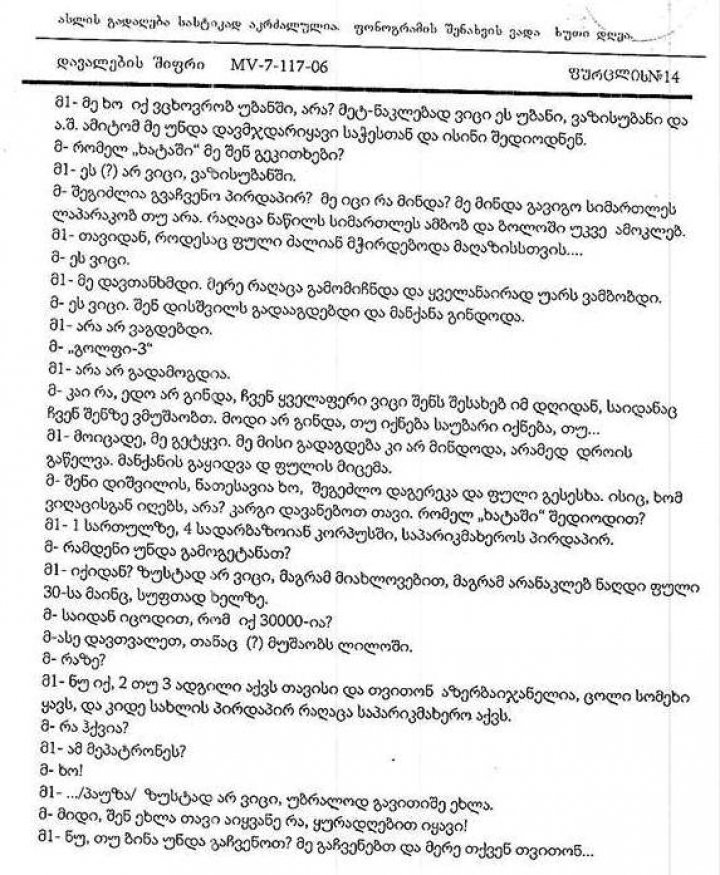 ასლის გადაღება სასტიკად აკრძალულია. ფონოგრამის შენახვის ვადა ხუთი დღეა.
დავალების შიფრი MV-7-117-06 ფურცლის№14
მ1- მე ხო იქ ვცხოვრობ უბანში, არა? მეტ-ნაკლებად ვიცი ეს უბანი, ვაზისუბანი და
ა.შ. ამიტომ მე უნდა დავმჯდარიყავი საჭესთან და ისინი შედიოდნენ.
მ- რომელ „ხატაში“ მე შენ გეკითხები?
მ1- ეს (?) არ ვიცი, ვაზისუბანში.
მ- შეგიძლია გვაჩვენო პირდაპირ? მე იცი რა მინდა? მე მინდა გავიგო სიმართლეს
ლაპარაკობ თუ არა. რაღაცა ნაწილს სიმართლეს ამბობ და ბოლოში უკვე ამოკლებ.
მ1- თავიდან, როდესაც ფული ძალიან მჭირდებოდა მაღაზისსთვის....
მ- ეს ვიცი.
მ1- მე დავთანხმდი. მერე რაღაცა გამომიჩნდა და ყველანაირად უარს ვამბობდი.
მ- ეს ვიცი. შენ დისშვილს გადააგდებდი და მანქანა გინდოდა.
მ1- არა არ ვაგდებდი.
მ- „გოლფი-3“
მ1- არა არ გადამოგდია.
მ- კაი რა, ედო არ გინდა, ჩვენ ყველაფერი ვიცი შენს შესახებ იმ დღიდან, საიდანაც
ჩვენ შენზე ვმუშაობთ. მოდი არ გინდა, თუ იქნება საუბარი იქნება, თუ...
მ1- მოიცადე, მე გეტყვი. მე მისი გადაგდება კი არ მინდოდა, არამედ დროის
გაწელვა. მანქანის გაყიდვა დ ფულის მიცემა.
მ- შენი დიშვილის, ნათესავია ხო, შეგეძლო დაგერეკა და ფული გესესხა. ისიც, ხომ
ვიღაცისგან იღებს, არა? კარგი დავანებოთ თავი. რომელ „ხატაში“ შედიოდით?
მ1- 1 სართულზე, 4 სადარბაზოიან კორპუსში, საპარიკმახეროს პირდაპირ.
მ- რამდენი უნდა გამოგეტანათ?
მ1- იქიდან? ზუსტად არ ვიცი, მაგრამ მიახლოვებით, მაგრამ არანაკლებ ნაღდი ფული
30-სა მაინც, სუფთად ხელზე.
მ- საიდან იცოდით, რომ იქ 30000-ია?
მ-ასე დავთვალეთ, თანაც (?) მუშაობს ლილოში.
მ- რაზე?
მ1- ნუ იქ, 2 თუ 3 ადგილი აქვს თავისი და თვითონ აზერბაიჯანელია, ცოლი სომეხი
ყავს, და კიდე სახლის პირდაპირ რაღაცა საპარიკმახერო აქვს.
მ- რა ჰქვია?
მ1- ამ მეპატრონეს?
მ- ხო!
მ1- .../პაუზა/ ზუსტად არ ვიცი, უბრალოდ გავითიშე ეხლა.
მ- მიდი, შენ ეხლა თავი აიყვანე რა, ყურადღებით იყავი!
მ1- ნუ, თუ ბინა უნდა გაჩვენოთ? მე გაჩვენებთ და მერე თქვენ თვითონ...